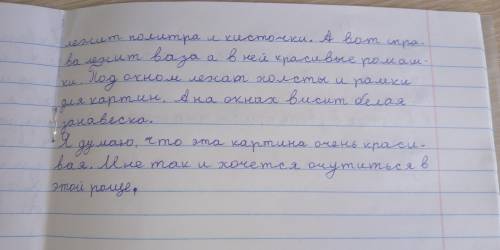 лежит политра и кисточки. А вот спра-
ва лежит ваза а в ней красивые ромаш-
ки. Под окном лежат холсты и рамки
для картин. А на окнах висит белая
занавеска.
Я думаю, что эта картина очень краси-
вая. Мне так и хочется очутиться в
этой роще.